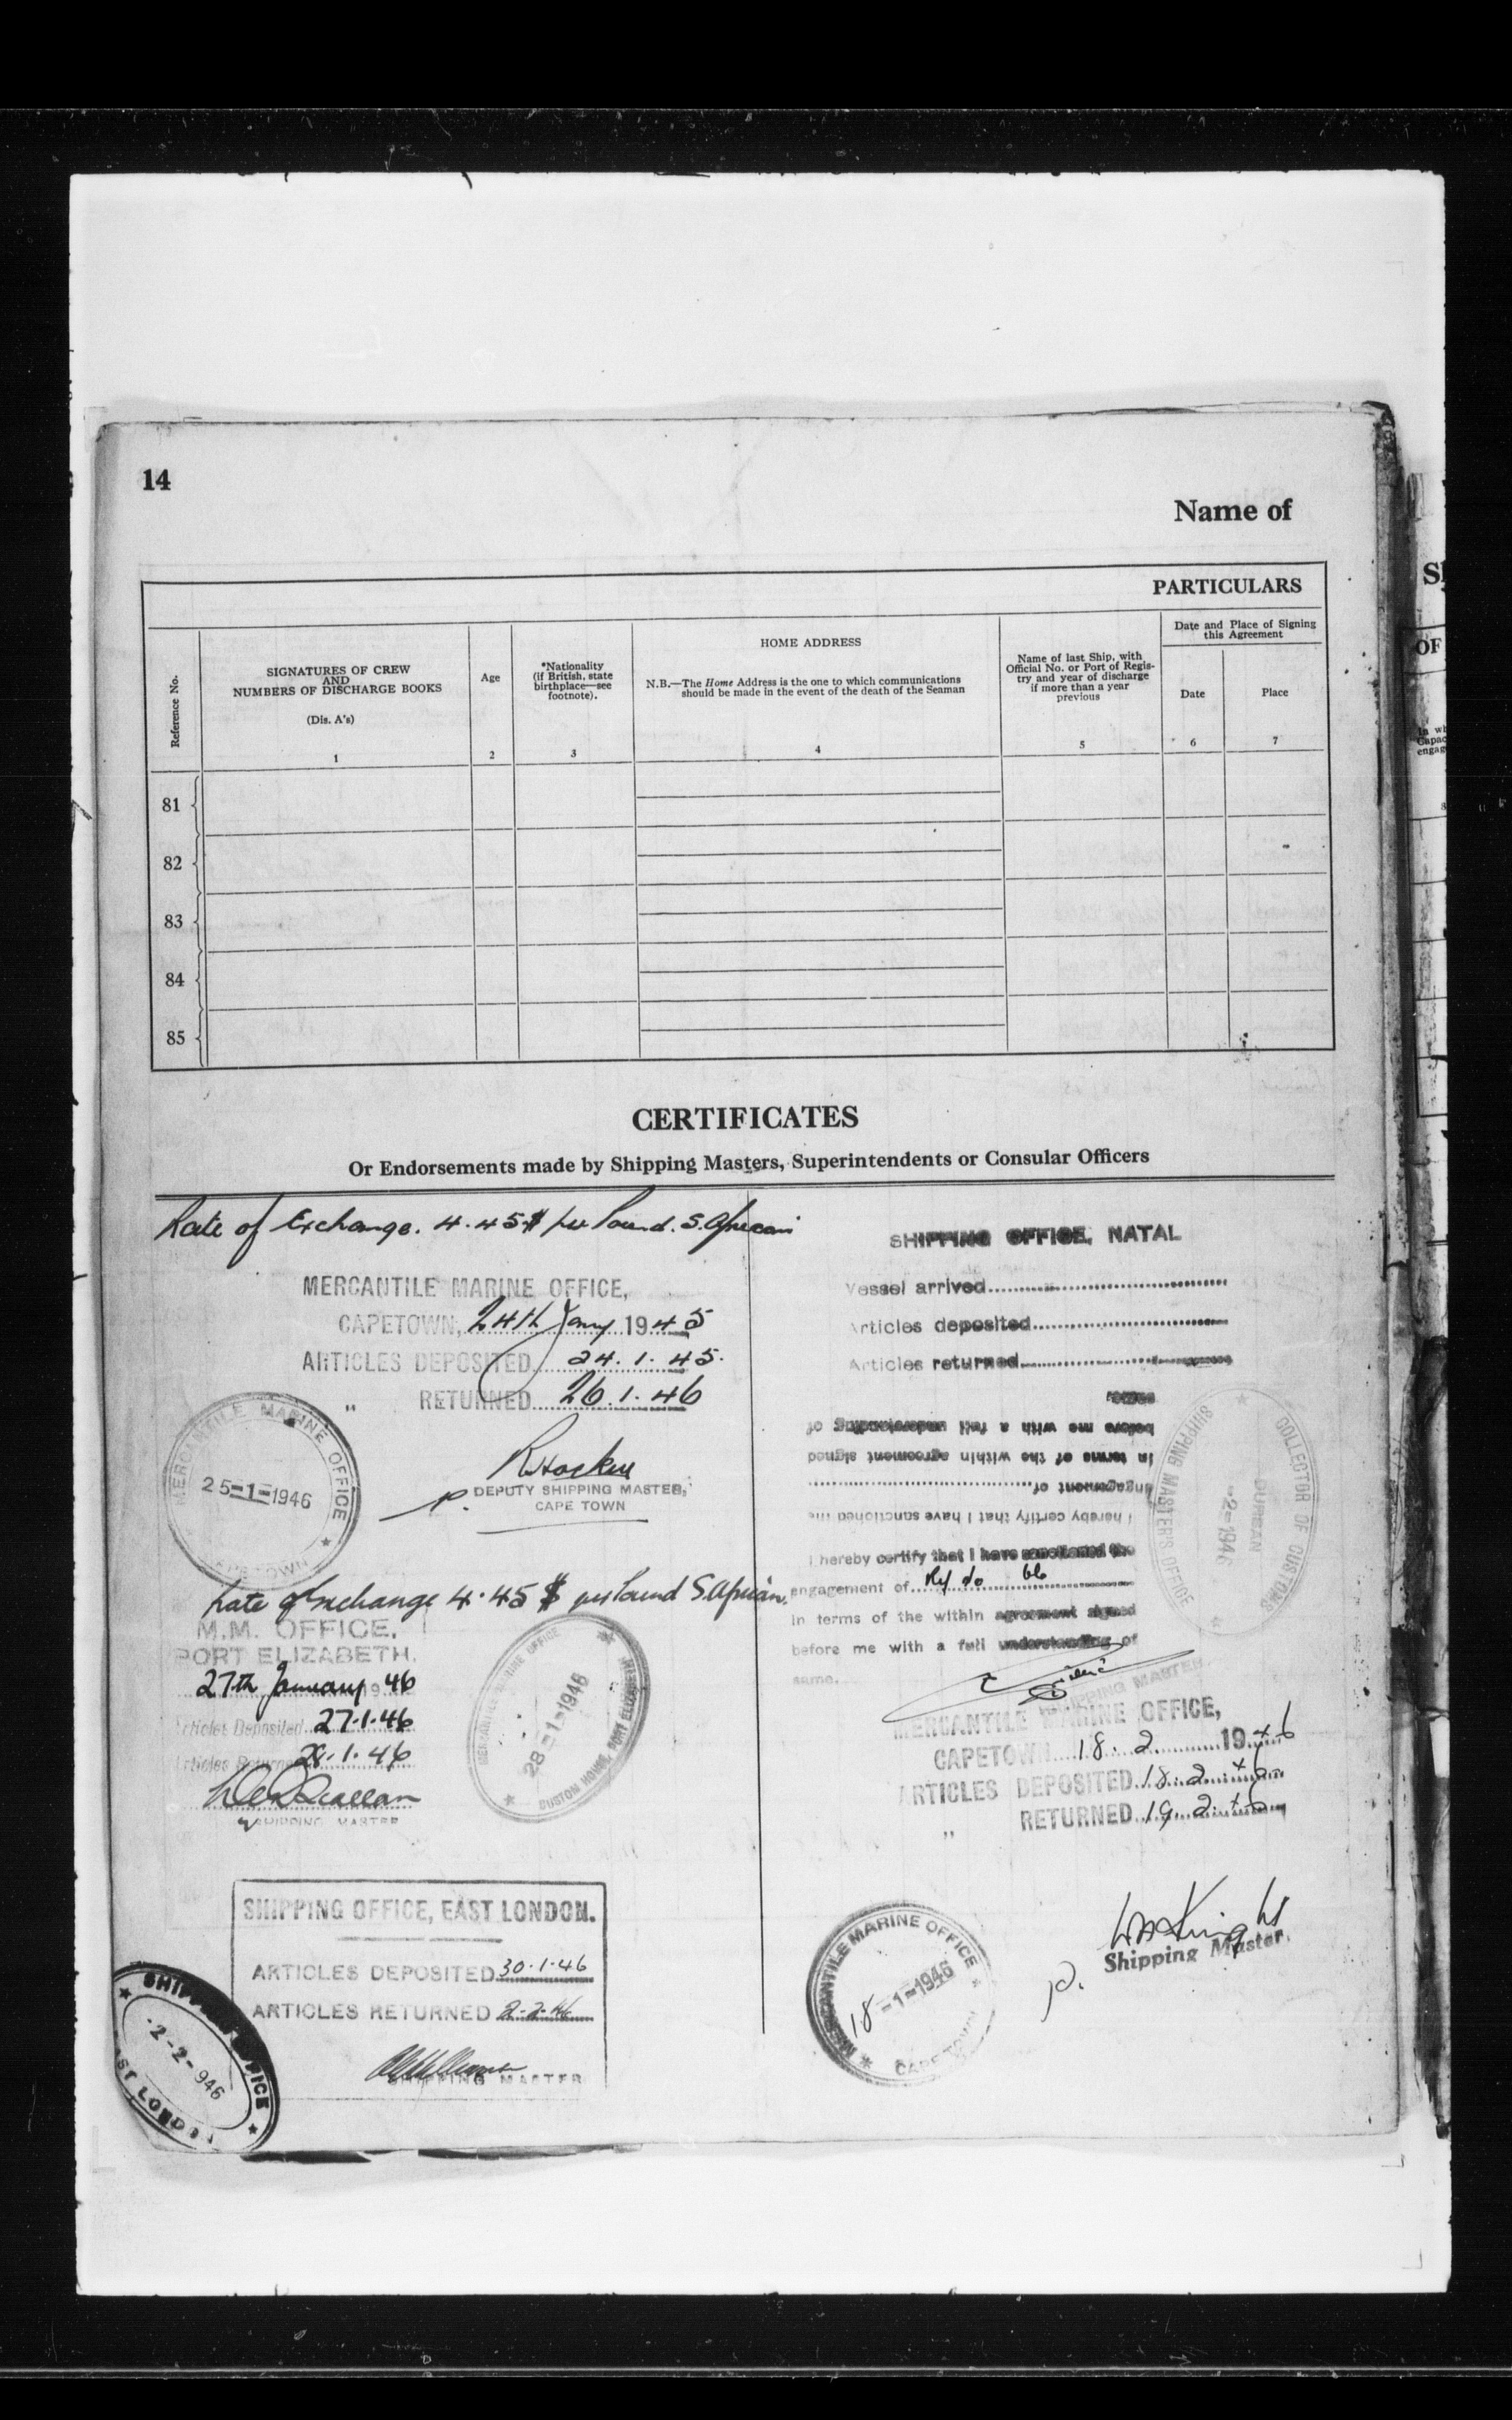 14
Name of
PARTICULARS
Reference No.
SIGNATURES OF CREW
AND
NUMBERS OF DISCHARGE BOOKS
(Dis. A's)
1
Age
2
*Nationality
(if British, state
birthplace—see
footnote).
3
HOME ADDRESS
N.B.—The Home Address is the one to which communications
should be made in the event of the death of the Seaman
4
Name of last Ship, with
Official No. or Port of Regis-
try and year of discharge
if more than a year
previous
5
Date and Place of Signing
this Agreement
Date
6
Place
7
81
82
83
84
85
CERTIFICATES
Or Endorsements made by Shipping Masters, Superintendents or Consular Officers
Rate of Exchange. 4.45$ per Pound. S. African
MERCANTILE MARINE OFFICE,
CAPETOWN, 24th Jany 1945
ARTICLES DEPOSITED 24.1.45.
" RETURNED 26.1.46
MERCANTILE MARINE OFFICE
25-1-1946
CAPE TOWN
p. DEPUTY SHIPPING MASTER,
CAPE TOWN
Rate of Exchange 4.45 $ per Pound S. African.
M.M. OFFICE,
PORT ELIZABETH.
27th January 1946
Articles Deposited 27.1.46
Articles Returned 28.1.46
SHIPPING MASTER
MERCANTILE MARINE OFFICE
28-1-1946
CUSTOM HOUSE, PORT ELIZABETH
SHIPPING OFFICE, EAST LONDON.
ARTICLES DEPOSITED 30.1.46
ARTICLES RETURNED 2-2-46
SHIPPING MASTER
SHIPPING OFFICE
-2-2-946
EAST LONDON
SHIPPING OFFICE, NATAL
Vessel arrived
Articles deposited
Articles returned
I hereby certify that I have sanctioned the
engagement of
in terms of the within agreement signed
before me with a full understanding of
same.
COLLECTOR OF CUSTOMS
DURBAN
-2-1946
SHIPPING MASTER'S OFFICE
I hereby certify that I have sanctioned the
engagement of Ref No 66
in terms of the within agreement signed
before me with a full understanding of
same.
SHIPPING MASTER
MERCANTILE MARINE OFFICE,
CAPETOWN 18.2. 1946
ARTICLES DEPOSITED 18.2.46
" RETURNED 19.2.46
MERCANTILE MARINE OFFICE
18-1-1946
CAPE TOWN
p. Shipping Master.